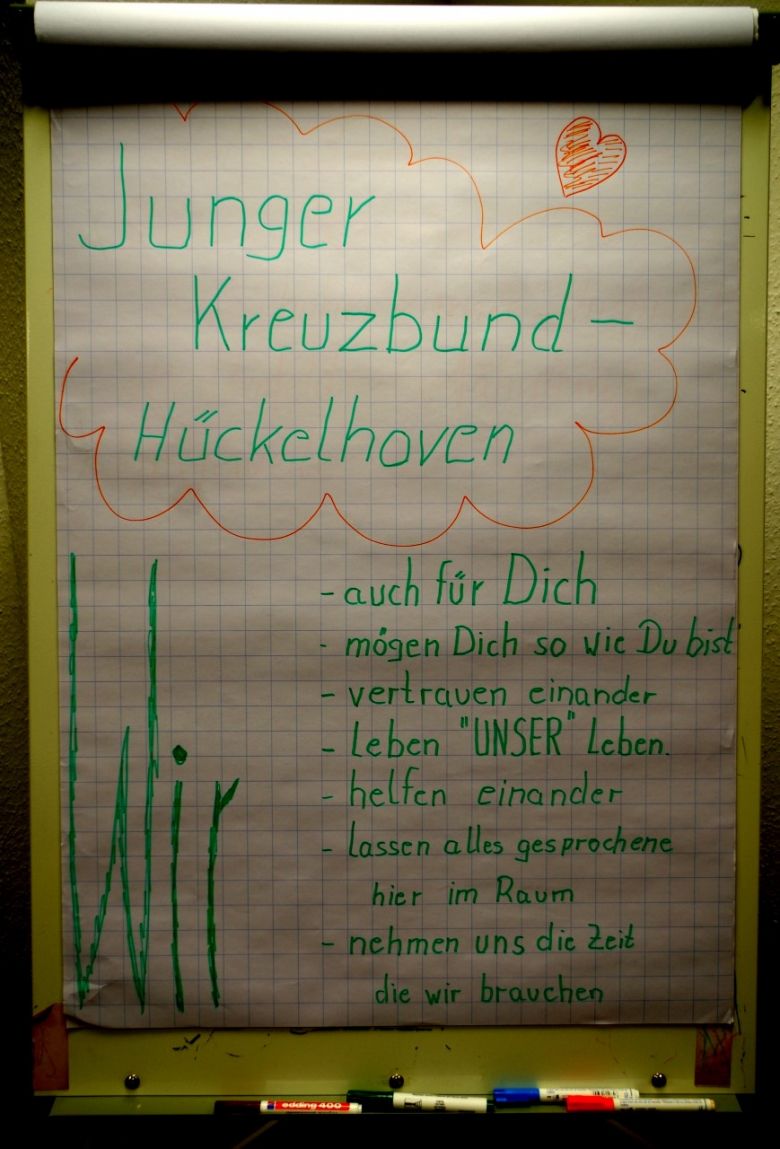 Junger
Kreuzbund -
Hückelhoven
Wir
- auch für Dich
- mögen Dich so wie Du bist
- vertrauen einander
- leben "UNSER" Leben.
- helfen einander
- lassen alles gesprochene
hier im Raum
- nehmen uns die Zeit
die wir brauchen
edding 400